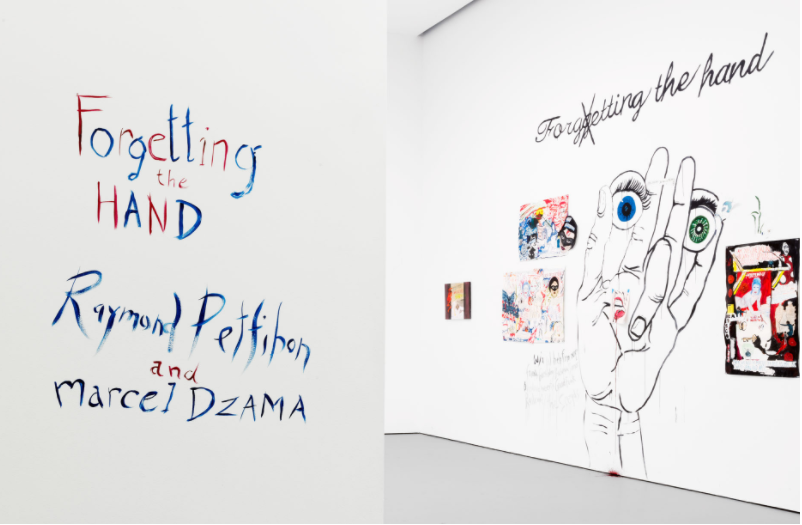 Forgetting
the
HAND
Raymond Pettibon
and
Marcel DZAMA
Forgetting the hand